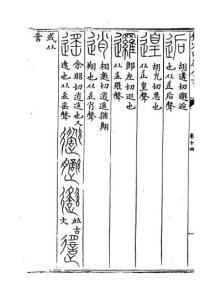 卷十四
逅 胡遘切邂逅也从辵后聲
遑 胡光切急也从辵皇聲
邏 郎左切巡也从辵羅聲
逍 相邀切逍遙猶翱翔也从辵肖聲
遙 余昭切逍遙也又遠也从辵䍃聲 竝古文
或从言